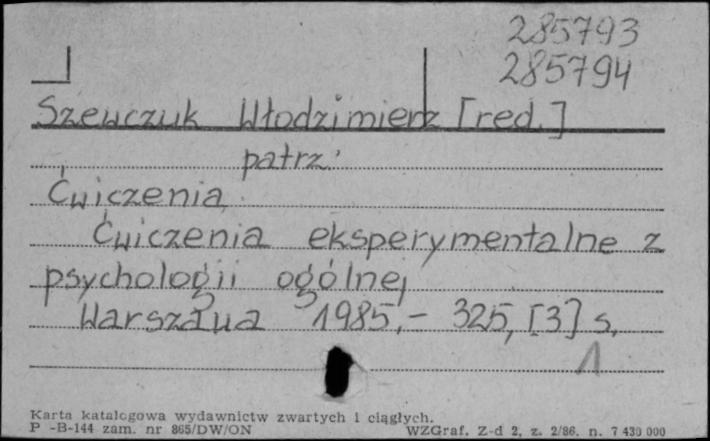 285793
285794
Szewczuk Włodzimierz [red.]
patrz:
Ćwiczenia
Ćwiczenia eksperymentalne z
psychologii ogólnej
Warszawa 1985,- 325, [3] s.
1
Karta katalogowa wydawnictw zwartych i ciągłych.
P -B-144 zam. nr 865/DW/ON WZGraf. Z-d 2, z. 2/86. n. 7 430 000